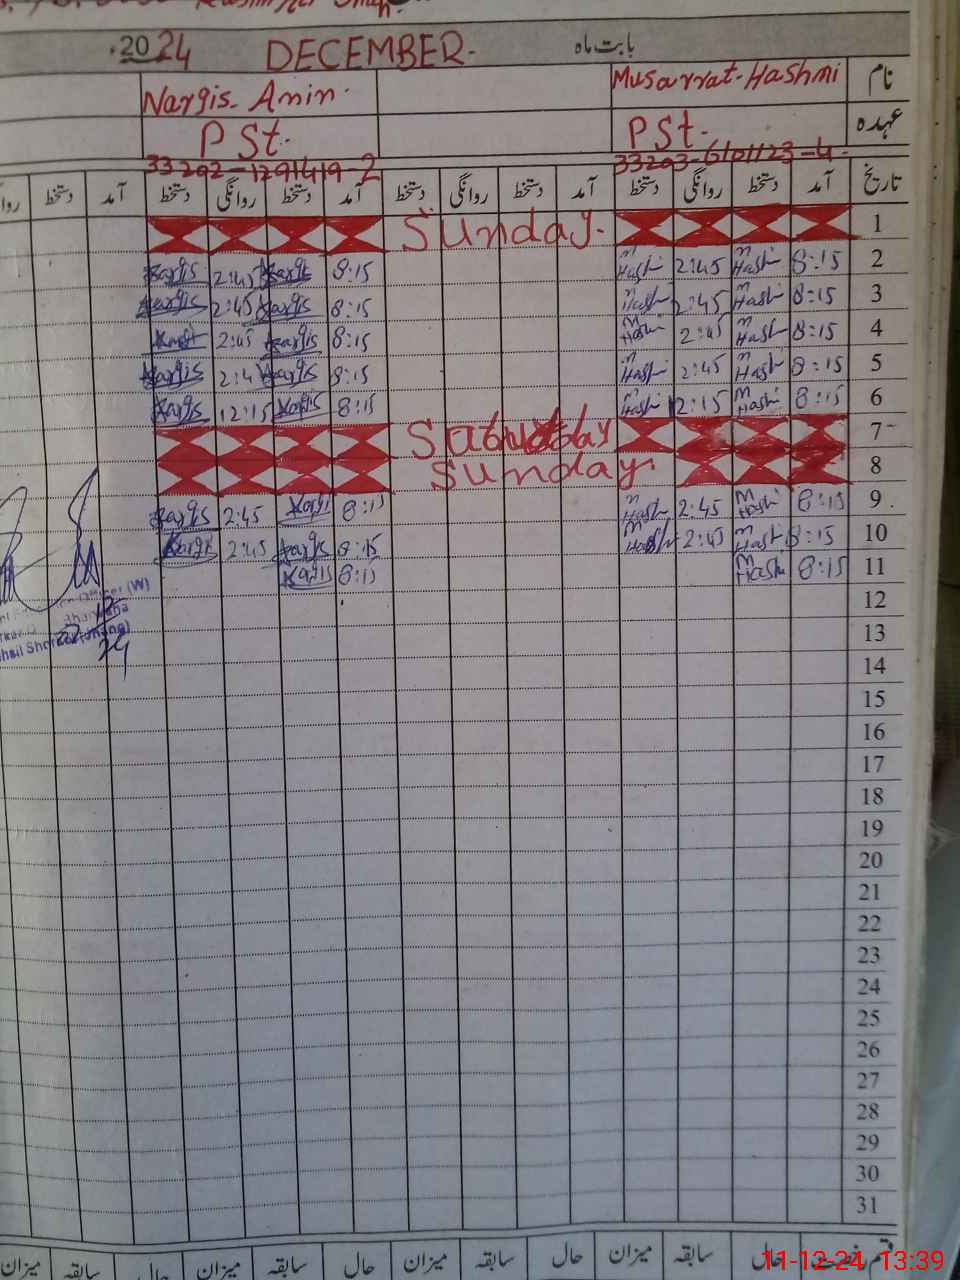 2024 DECEMBER. بابت ماہ
Nargis. Amin. Musarrat-Hashmi نام
PSt. PSt. عہدہ
33202-1291419-2 33203-6101123-4.
دستخط آمد دستخط روانگی دستخط آمد دستخط روانگی دستخط آمد دستخط روانگی دستخط آمد تاریخ
Sunday. 1
Nargis 2:45 Nargis 8:15 M Hashi 2:45 M Hashi 8:15 2
Nargis 2:45 Nargis 8:15 M Hashi 2:45 M Hashi 8:15 3
2:45 Nargis 8:15 M Hashi 2:45 M Hashi 8:15 4
Nargis 2:4 Nargis 8:15 M Hashi 2:45 M Hashi 8:15 5
Nargis 12:15 Nargis 8:15 M Hashi 12:15 M Hashi 8:15 6
Saturday 7
Sunday. 8
Nargis 2:45 Nargis 8:15 M Hashi 2:45 M Hashi 8:15 9
Nargis 2:45 Nargis 8:15 M Hashi 2:45 M Hashi 8:15 10
Nargis 8:15 M Hashi 8:15 11
(W)
(Jhang)
24
12
13
14
15
16
17
18
19
20
21
22
23
24
25
26
27
28
29
30
31
میزان سابقہ حال میزان سابقہ حال میزان سابقہ حال میزان سابقہ حال قسم رخصت
11-12-24 13:39